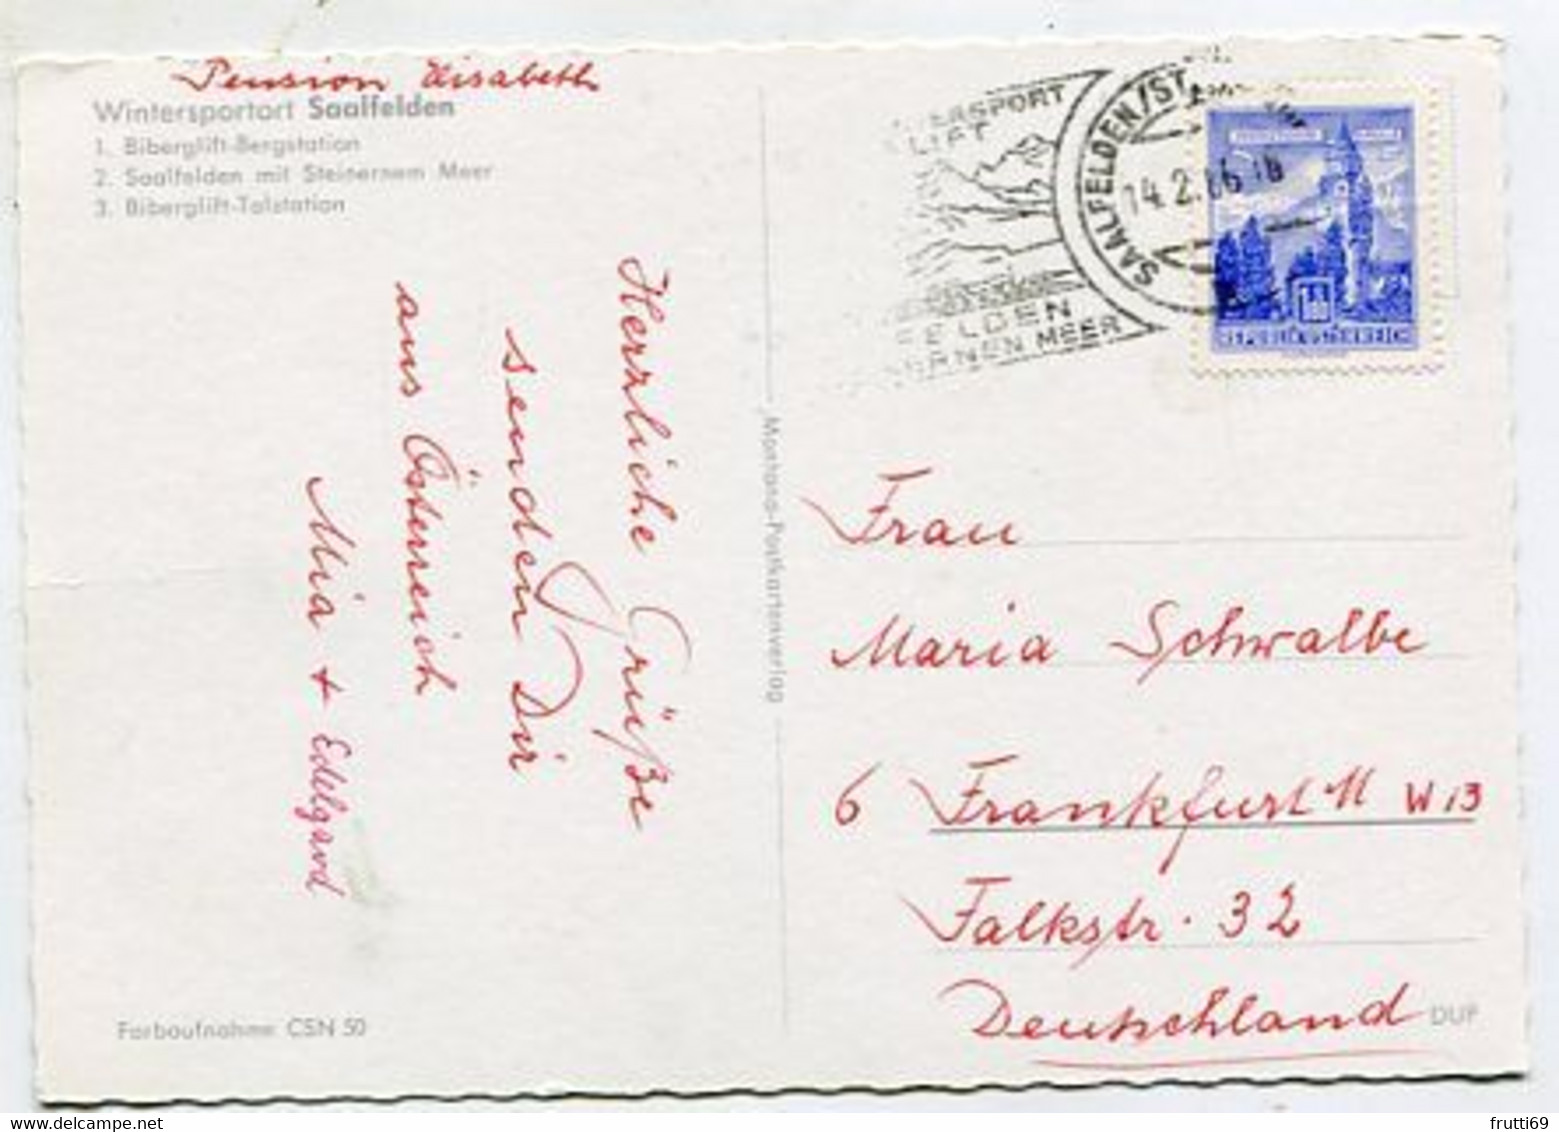 Pension Elisabeth
Wintersportort Saalfelden
1. Biberglift-Bergstation
2. Saalfelden mit Steinernem Meer
3. Biberglift-Talstation
Herzliche Grüße
senden Dir
aus Österreich
Mia + Edelgard
Farbaufnahme CSN 50
Montana-Postkartenverlag
ERSPORT
LIFT
ELDEN
RNEN MEER
SAALFELDEN/ST
14.2.66
Frau
Maria Schwalbe
6 Frankfurt M W 13
Falkstr. 32
Deutschland
DUP
frutti69